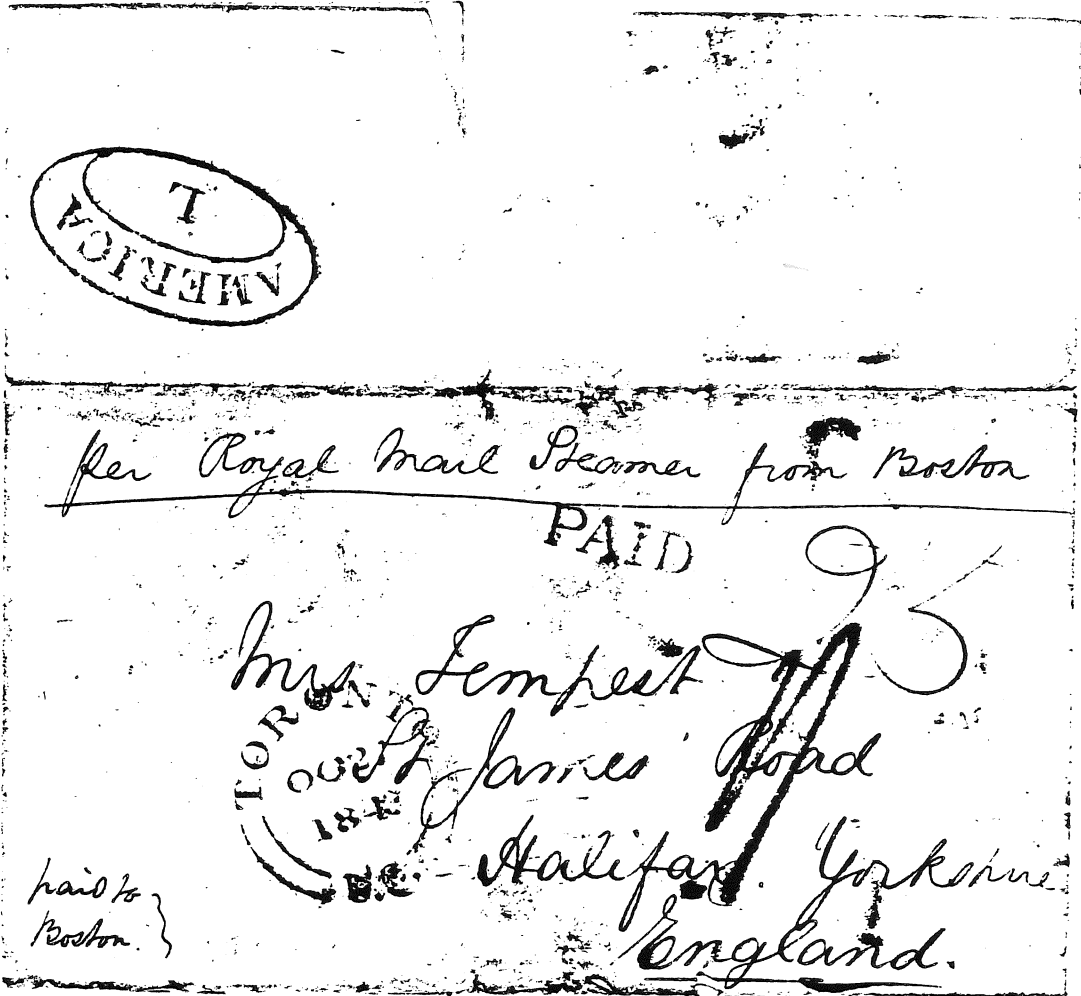 L
AMERICA
per Royal Mail Steamer from Boston
PAID
Mrs Tempest
St James' Road
Halifax. Yorkshire
England.
TORONTO
184
paid to
Boston.